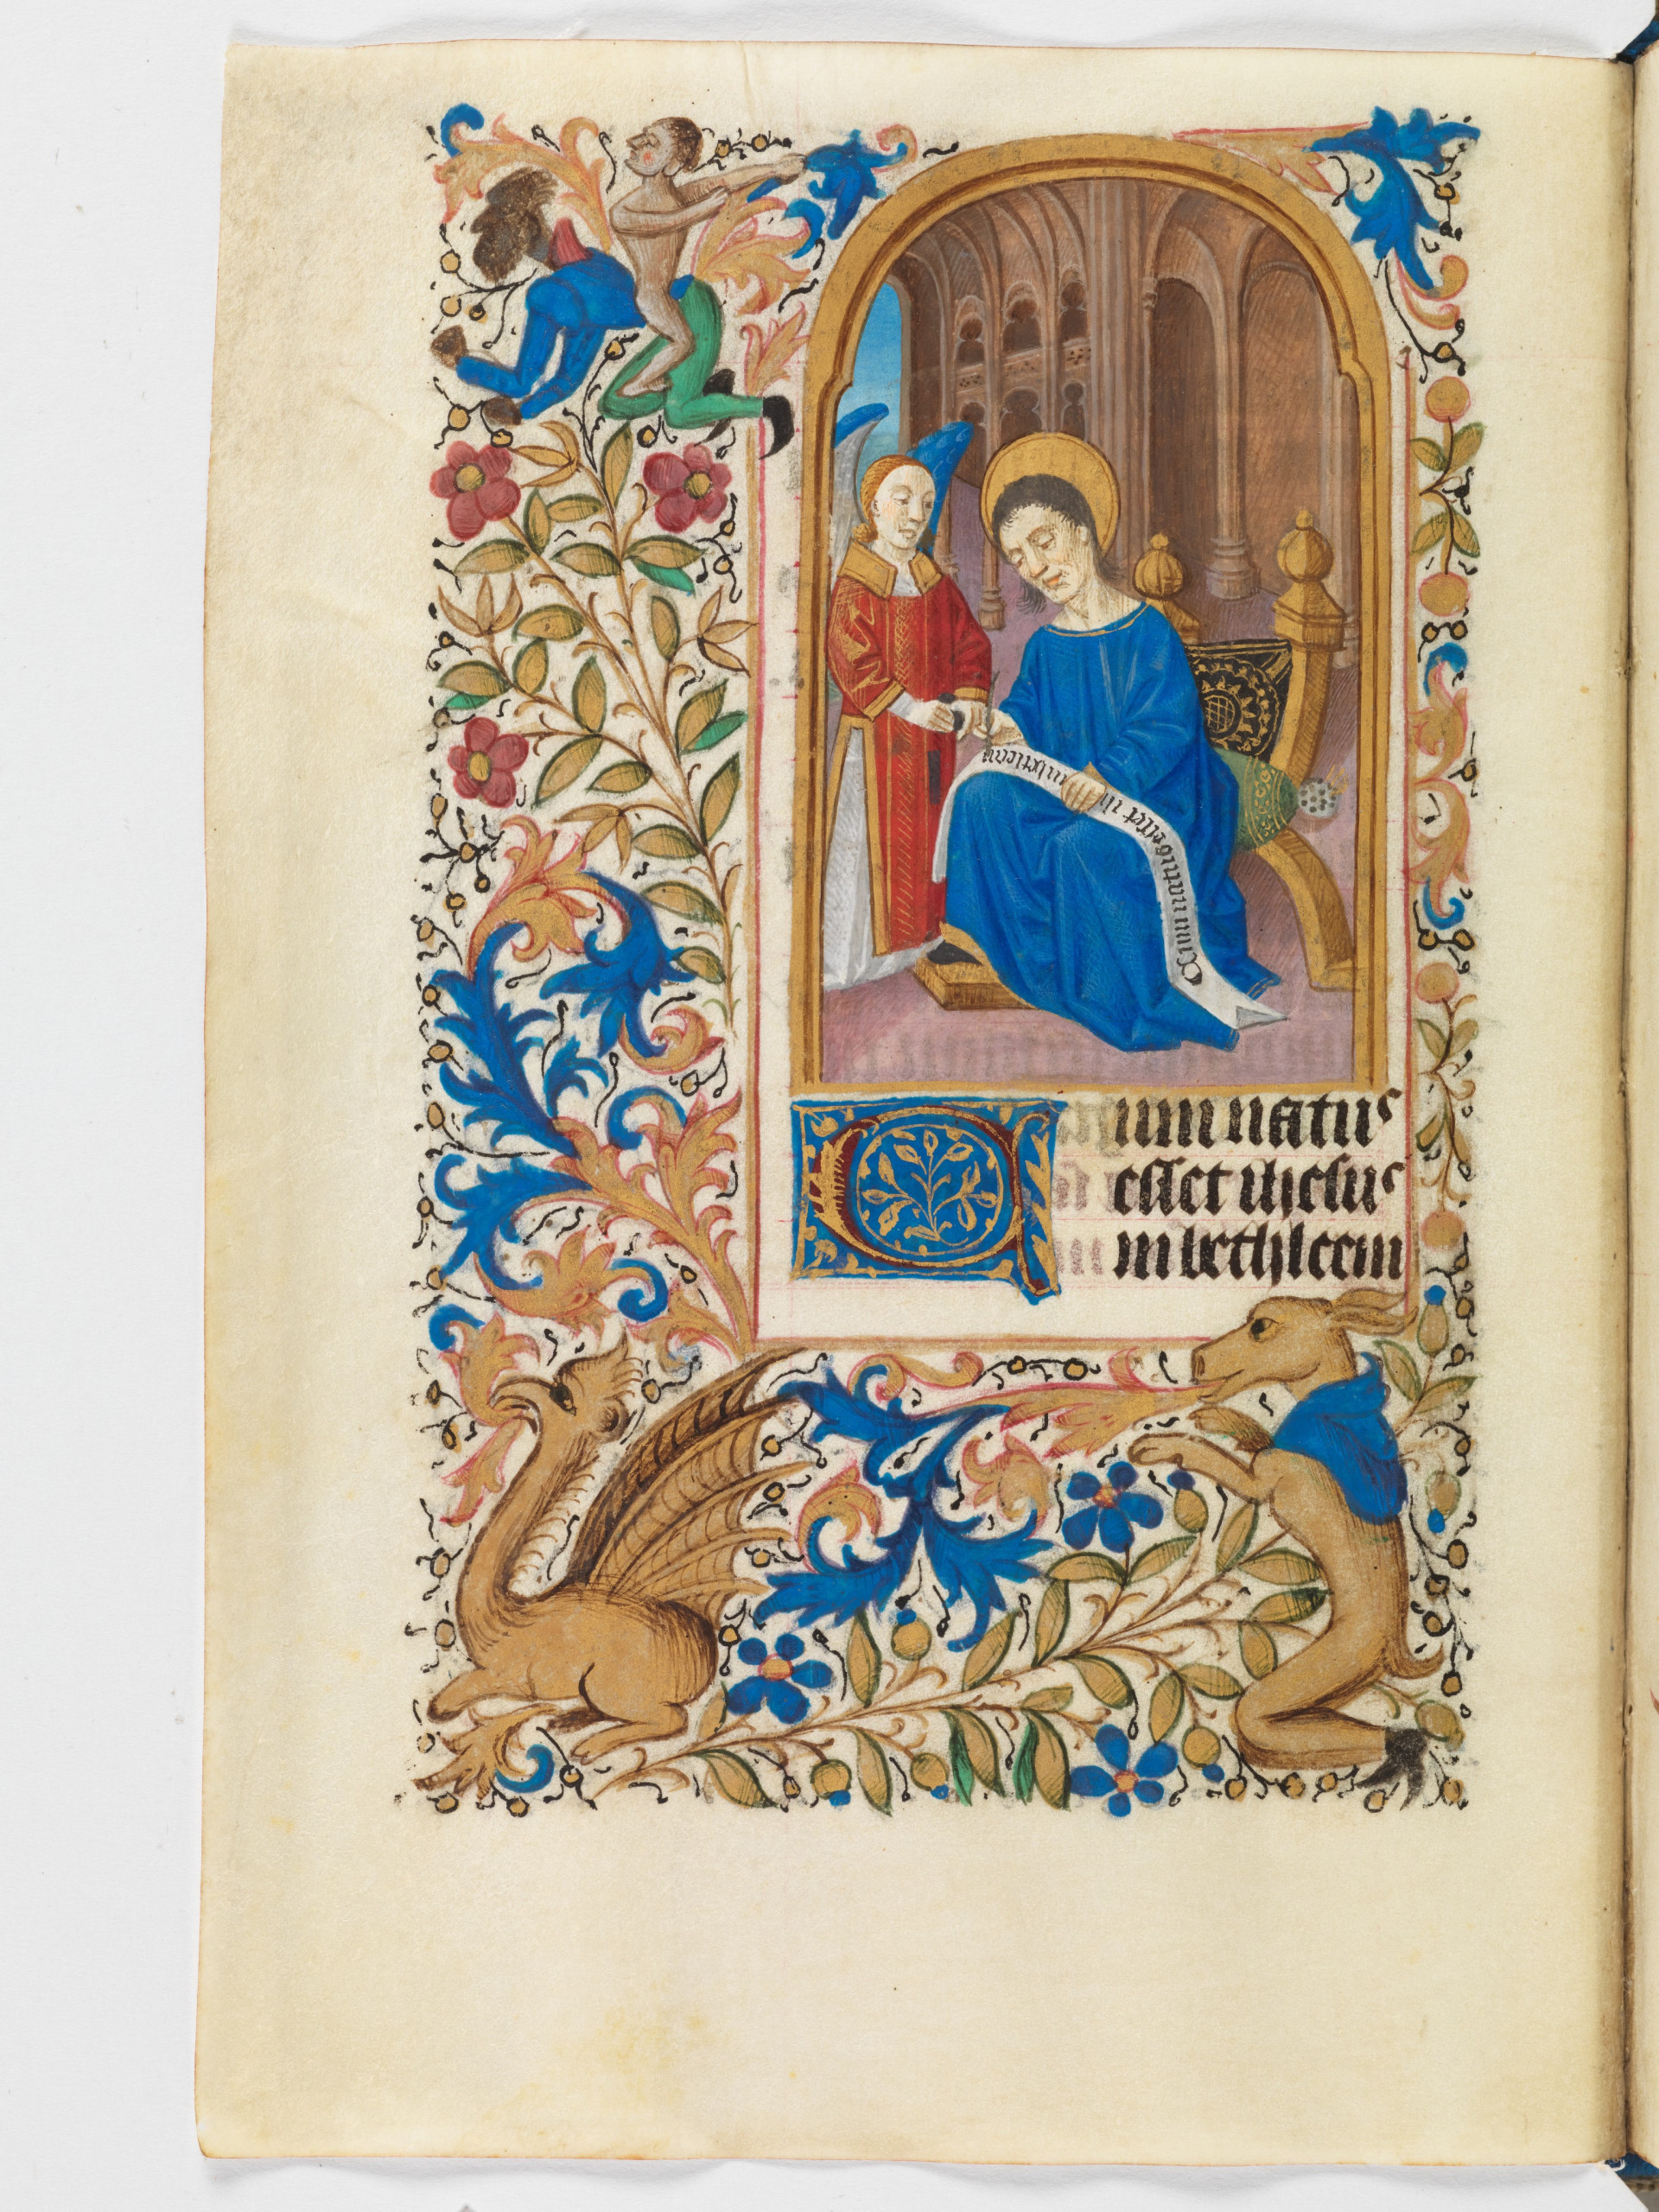 Qum natus esset ihs in betleem
Qum natus
esset ihesus
in bethleem